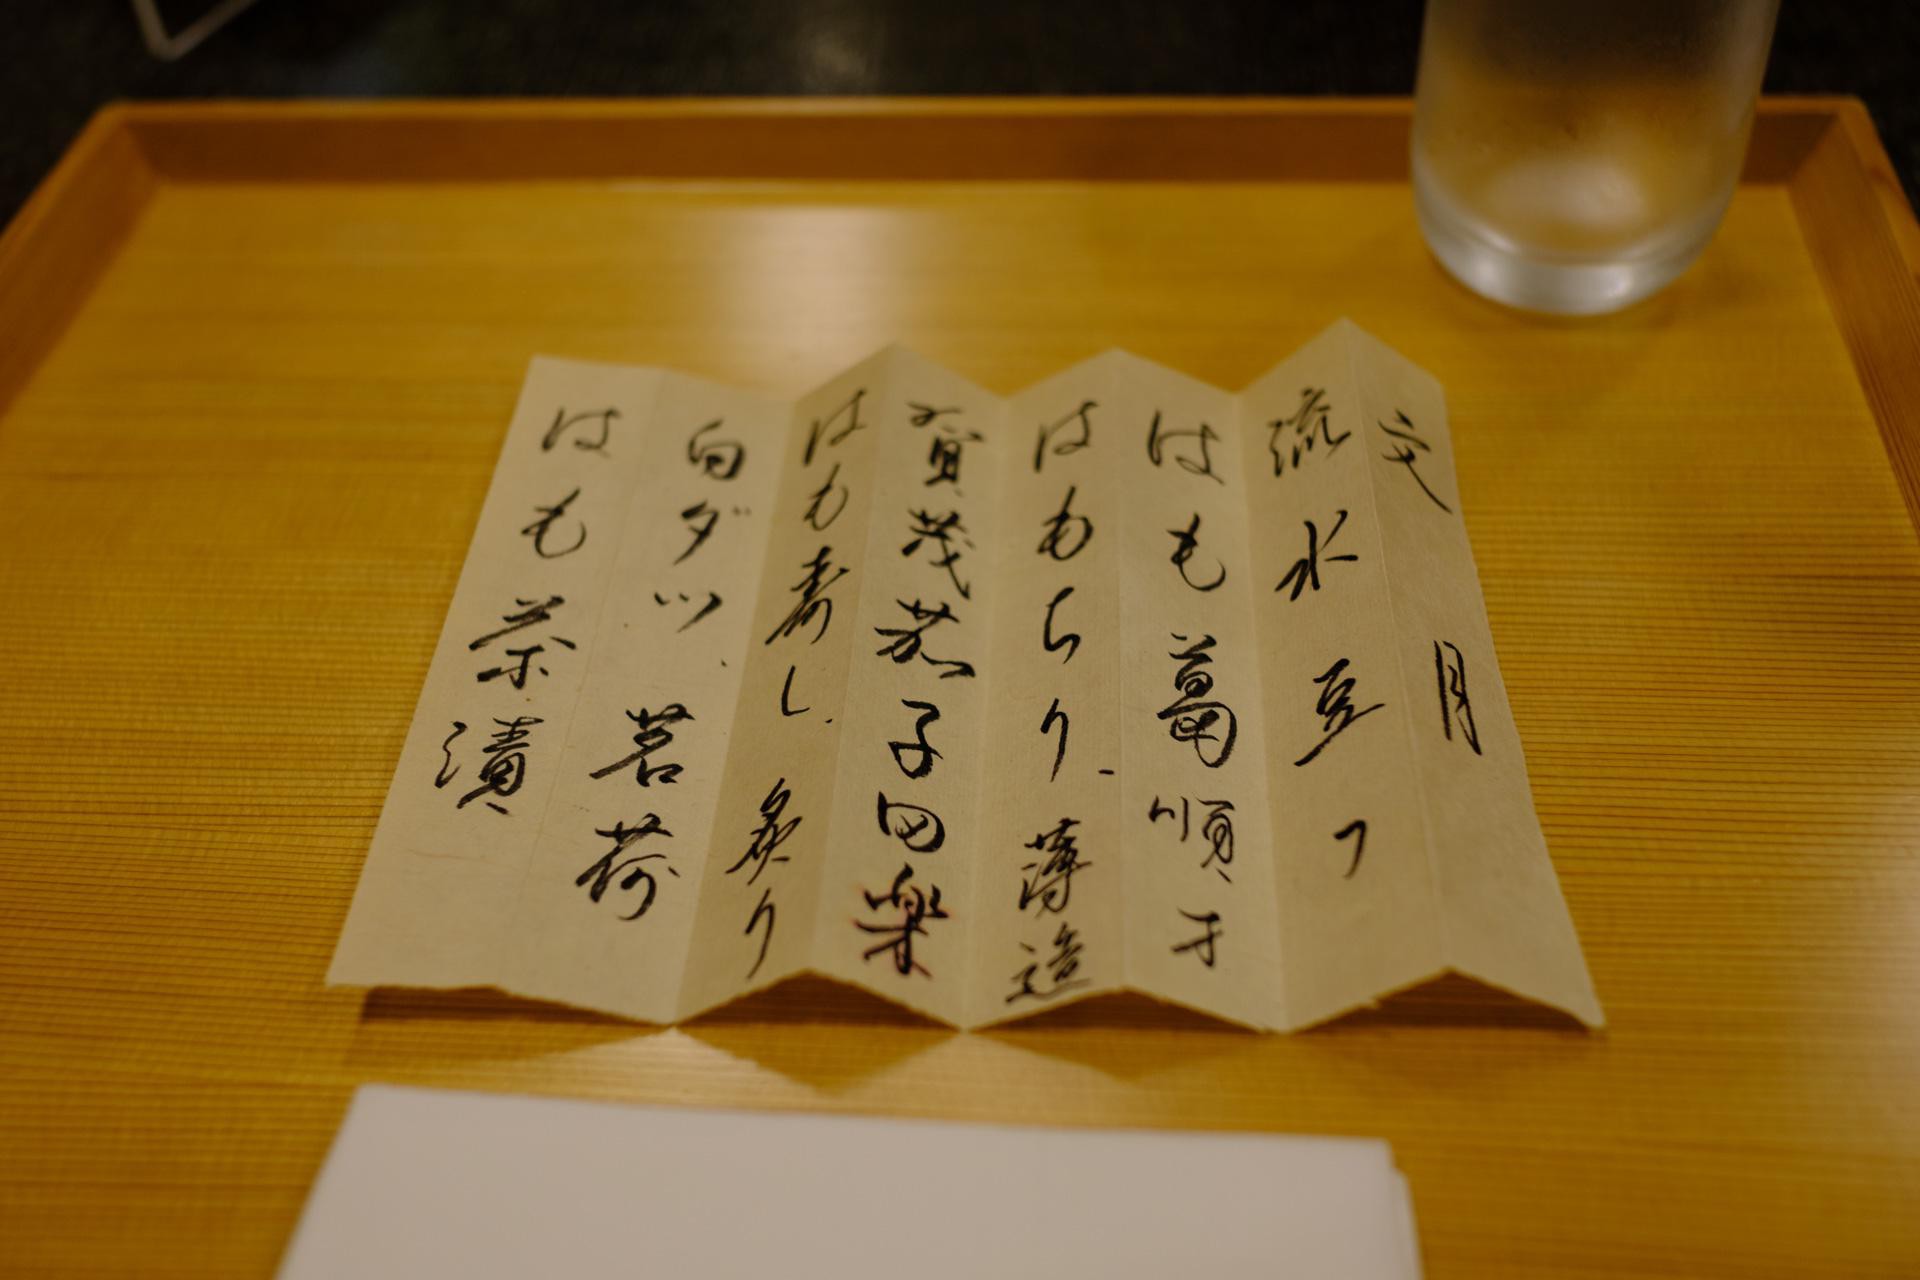 文月
流水豆フ
はも葛順才
はもちり、薄造
賀茂茄子田楽
はも寿し、炙り
白ダツ、茗荷
はも茶漬